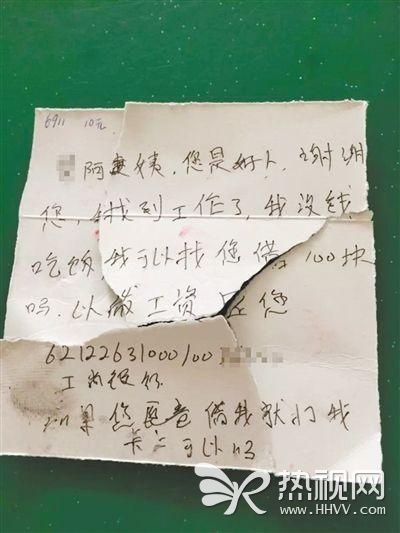 6911 10元
阿姨,您是好人,谢谢
您,我找到工作了,我没钱
吃饭我可以找您借100块
吗,以 工资还您
62122631000100
工商银行
如果您愿意借我就打我
卡上可以吗
热视网
WWW.HHVV.COM